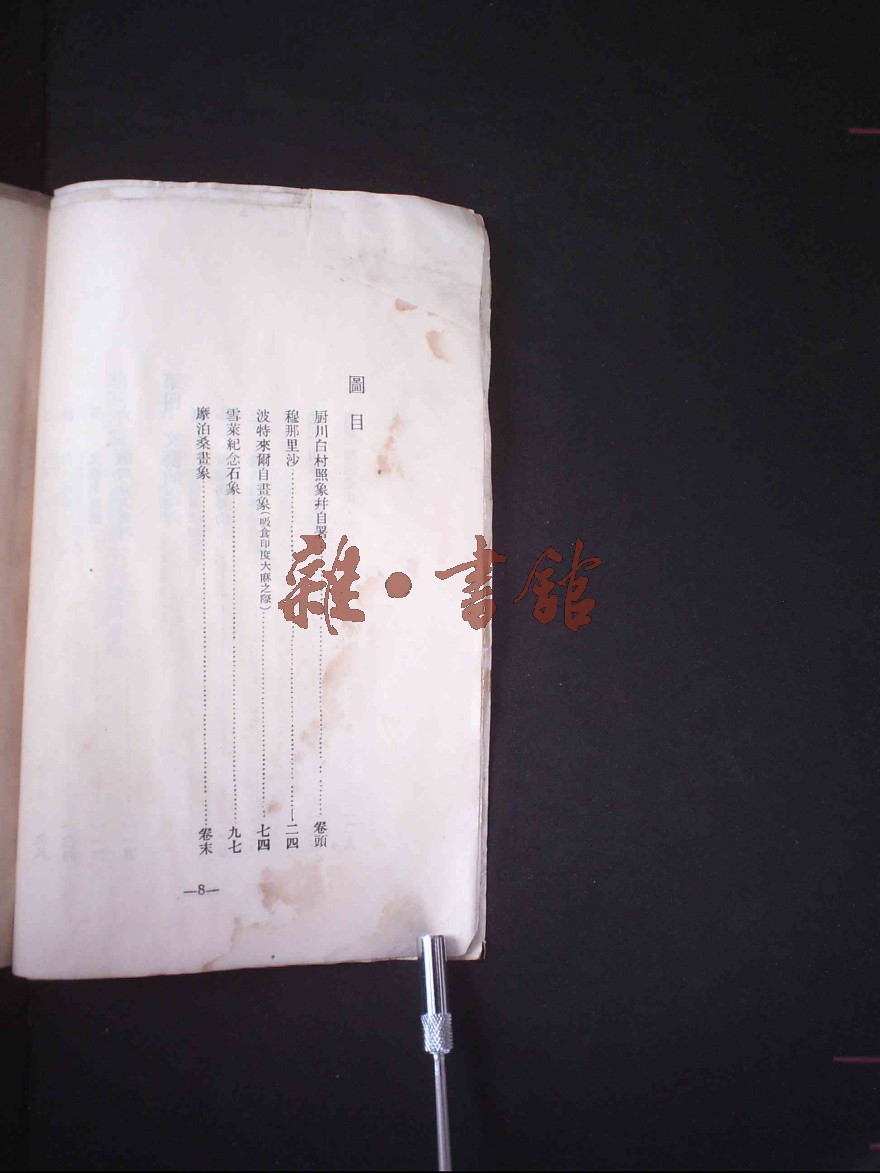 圖目
厨川白村照象幷自署……卷頭
穆那里沙……一二四
波特來爾自畫象(吸食印度大麻之際)……七四
雪萊紀念石象……九七
摩泊桑畫象……卷末
—8—
雜·書館